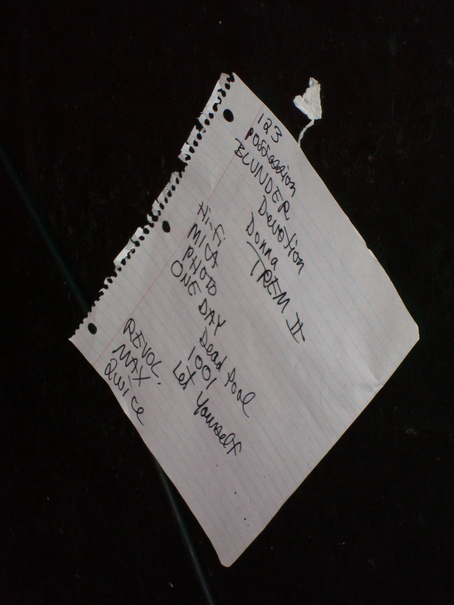 123
Possession
BLUNDER
Devotion
Donna
TREM II
Hi-fi
MICA
PHOTO
ONE DAY
Dead Pool
1001
Let Yourself
REVOL.
MAX
2wice